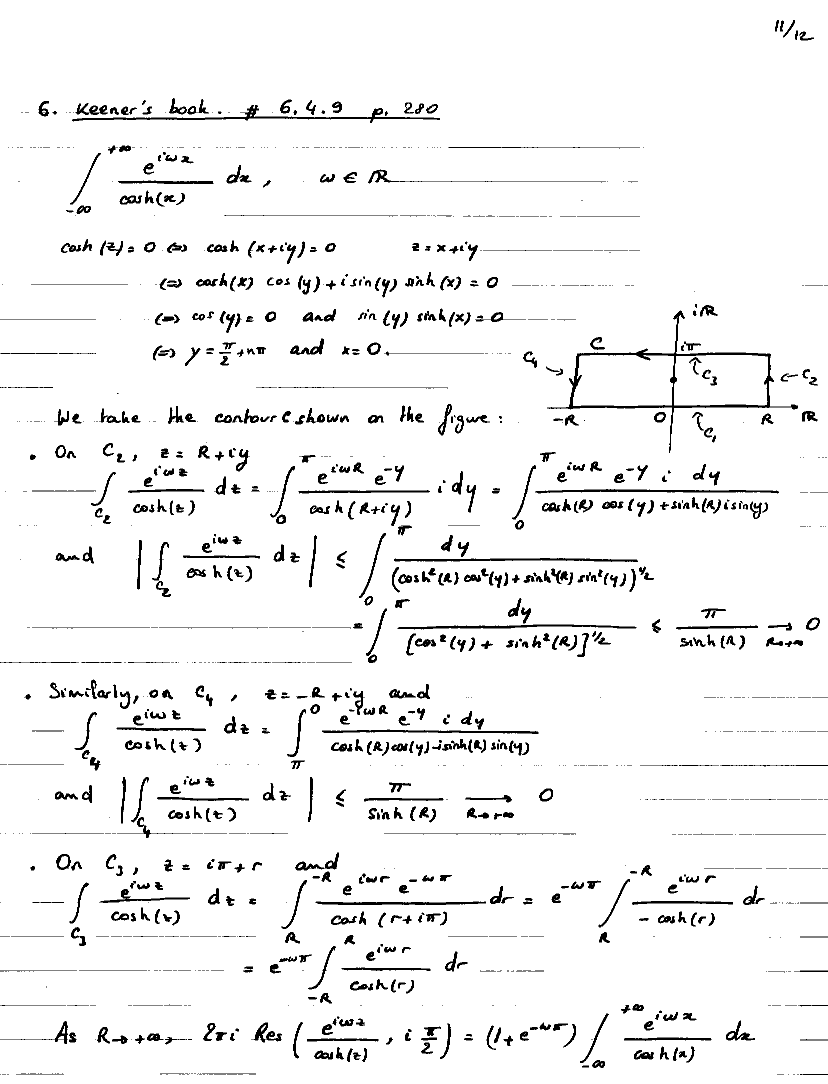 11/12
6. Keener's book. # 6.4.9 p. 280
∫_{-∞}^{+∞} e^{iωx}/cosh(x) dx, ω ∈ ℝ
cosh(z) = 0 ⇔ cosh(x+iy) = 0 z = x+iy
⇔ cosh(x) cos(y) + i sin(y) sinh(x) = 0
⇔ cos(y) = 0 and sin(y) sinh(x) = 0
⇔ y = π/2 + nπ and x = 0.
iℝ
C iπ
C₄ C₃ C₂
-R O C₁ R ℝ
We take the contour C shown on the figure:
• On C₂, z = R+iy
∫_{C₂} e^{iωz}/cosh(z) dz = ∫_0^π e^{iωR} e^{-y}/cosh(R+iy) i dy = ∫_0^π e^{iωR} e^{-y} i dy/(cosh(R) cos(y) + sinh(R) i sin(y))
and |∫_{C₂} e^{iωz}/cosh(z) dz| ≤ ∫_0^π dy/(cosh²(R) cos²(y) + sinh²(R) sin²(y))^{1/2}
= ∫_0^π dy/[cos²(y) + sinh²(R)]^{1/2} ≤ π/sinh(R) →_{R→+∞} 0
• Similarly, on C₄, z = -R+iy and
∫_{C₄} e^{iωz}/cosh(z) dz = ∫_π^0 e^{-iωR} e^{-y} i dy/(cosh(R)cos(y) - i sinh(R) sin(y))
and |∫_{C₄} e^{iωz}/cosh(z) dz| ≤ π/sinh(R) →_{R→+∞} 0
• On C₃, z = iπ+r and
∫_{C₃} e^{iωz}/cosh(z) dz = ∫_R^{-R} e^{iωr} e^{-ωπ}/cosh(r+iπ) dr = e^{-ωπ} ∫_R^{-R} e^{iωr}/-cosh(r) dr
= e^{-ωπ} ∫_{-R}^R e^{iωr}/cosh(r) dr
As R→+∞, 2πi Res(e^{iωz}/cosh(z), i π/2) = (1+e^{-ωπ}) ∫_{-∞}^{+∞} e^{iωx}/cosh(x) dx